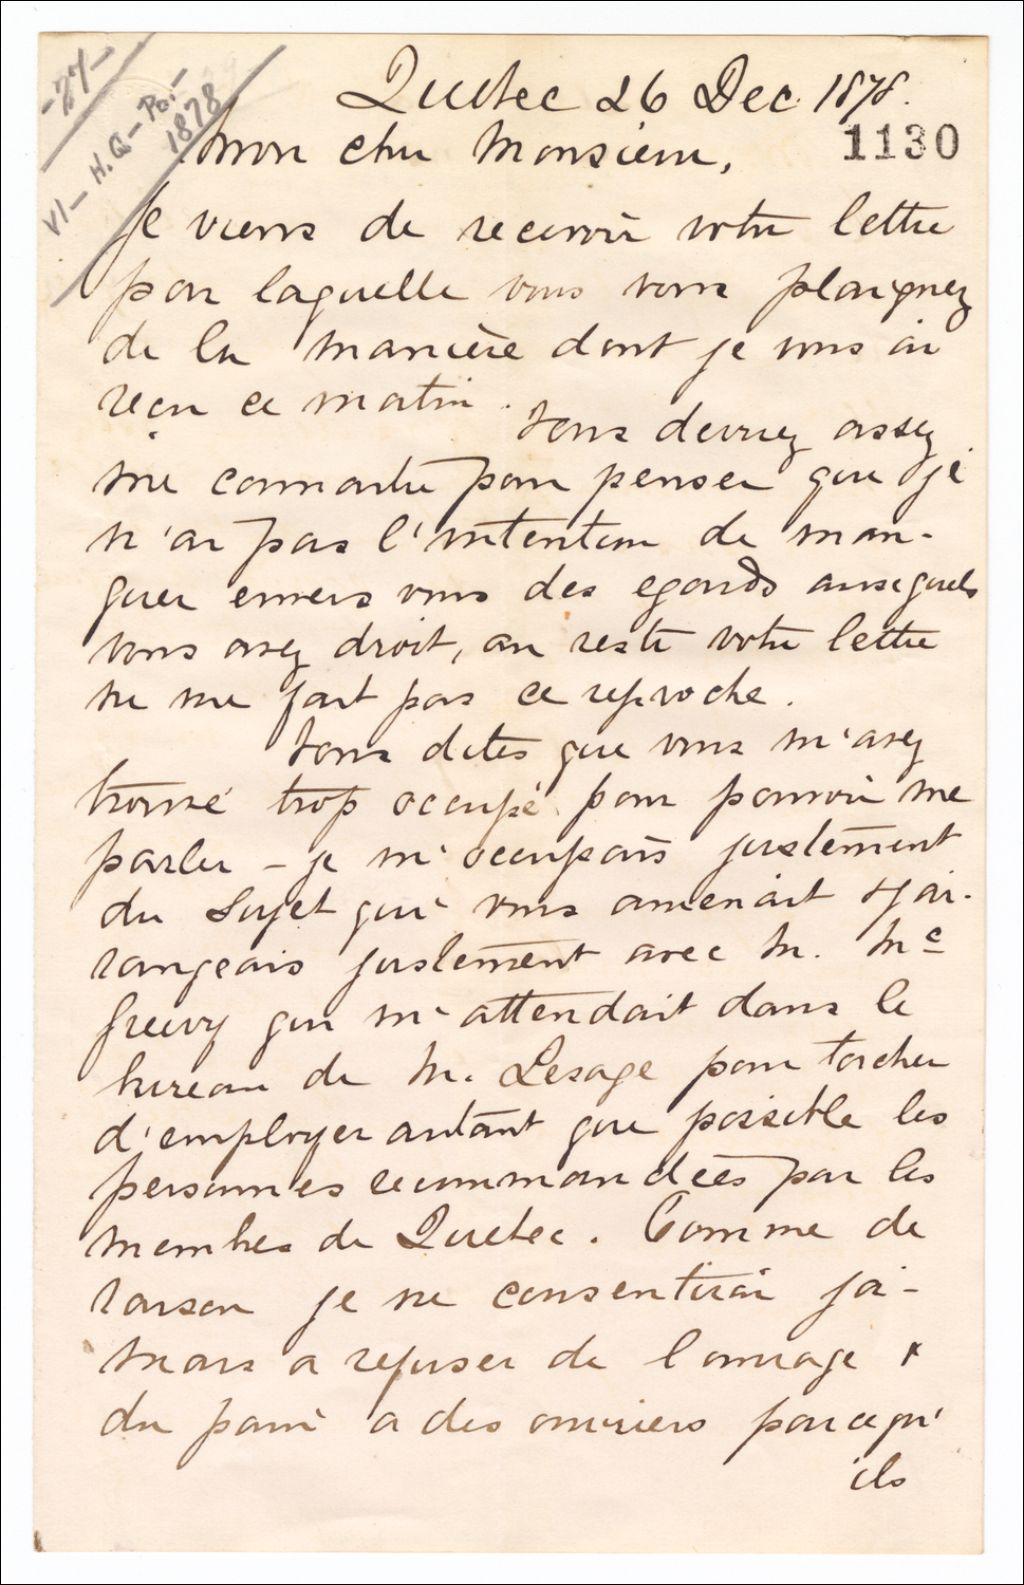 -27-
VI - H.Q - Po. -
1878
Quebec 26 Dec. 1878.
1130
Mon cher Monsieur,
Je viens de recevoir votre lettre
par laquelle vous vous plaignez
de la manière dont je vous ai
reçu ce matin.
Vous devriez assez
me connaitre pour penser que je
n'ai pas l'intention de man-
quer envers vous des egards auxquels
vous avez droit, au reste votre lettre
ne me fait pas ce reproche.
Vous dites que vous m'avez
trouvé trop occupé pour pouvoir me
parler - je m'occupais justement
du sujet qui vous amenait & j'ar-
rangeais justement avec M. Mc
Greevy qui m'attendait dans le
bureau de M. Lesage pour tacher
d'employer autant que possible les
personnes recommandées par les
membres de Quebec. Comme de
raison je ne consentirai ja-
mais a refuser de l'ouvrage &
du pain a des ouvriers parcequ'
ils